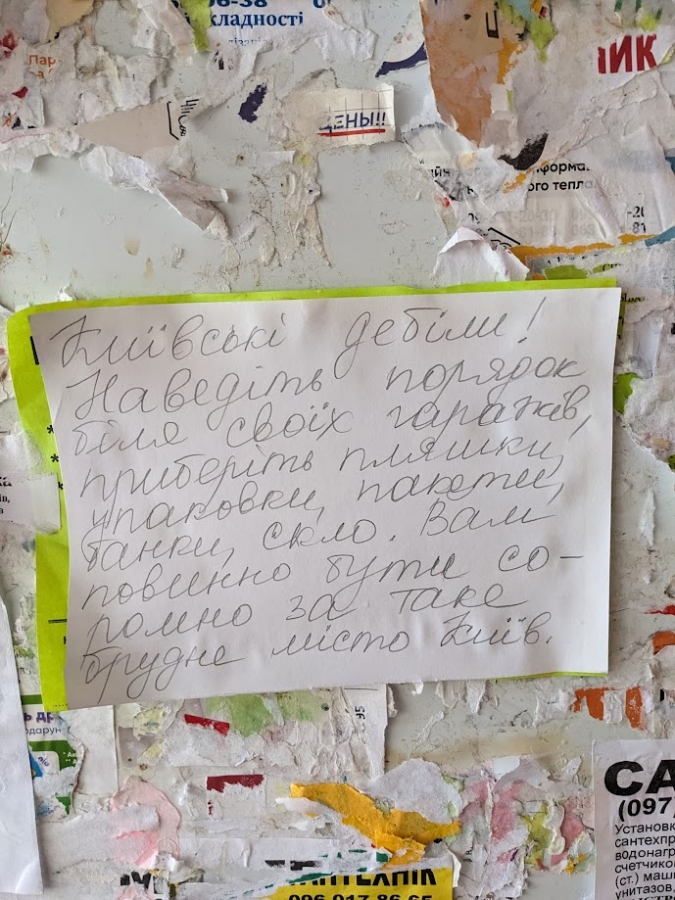 06-38
кладності
ИК
ЦЕНЫ!!
ого тепла
Київські дебіли!
Наведіть порядок
біля своїх гаражів,
приберіть пляшки,
упаковки, пакети,
банки, скло. Вам
повинно бути со-
ромно за таке
брудне місто Київ.
СА
(097)
Установк
сантехпр
водонагр
счетчико
(ст.) маши
унитазов,
АНТЕХНІК
096 017 86 65